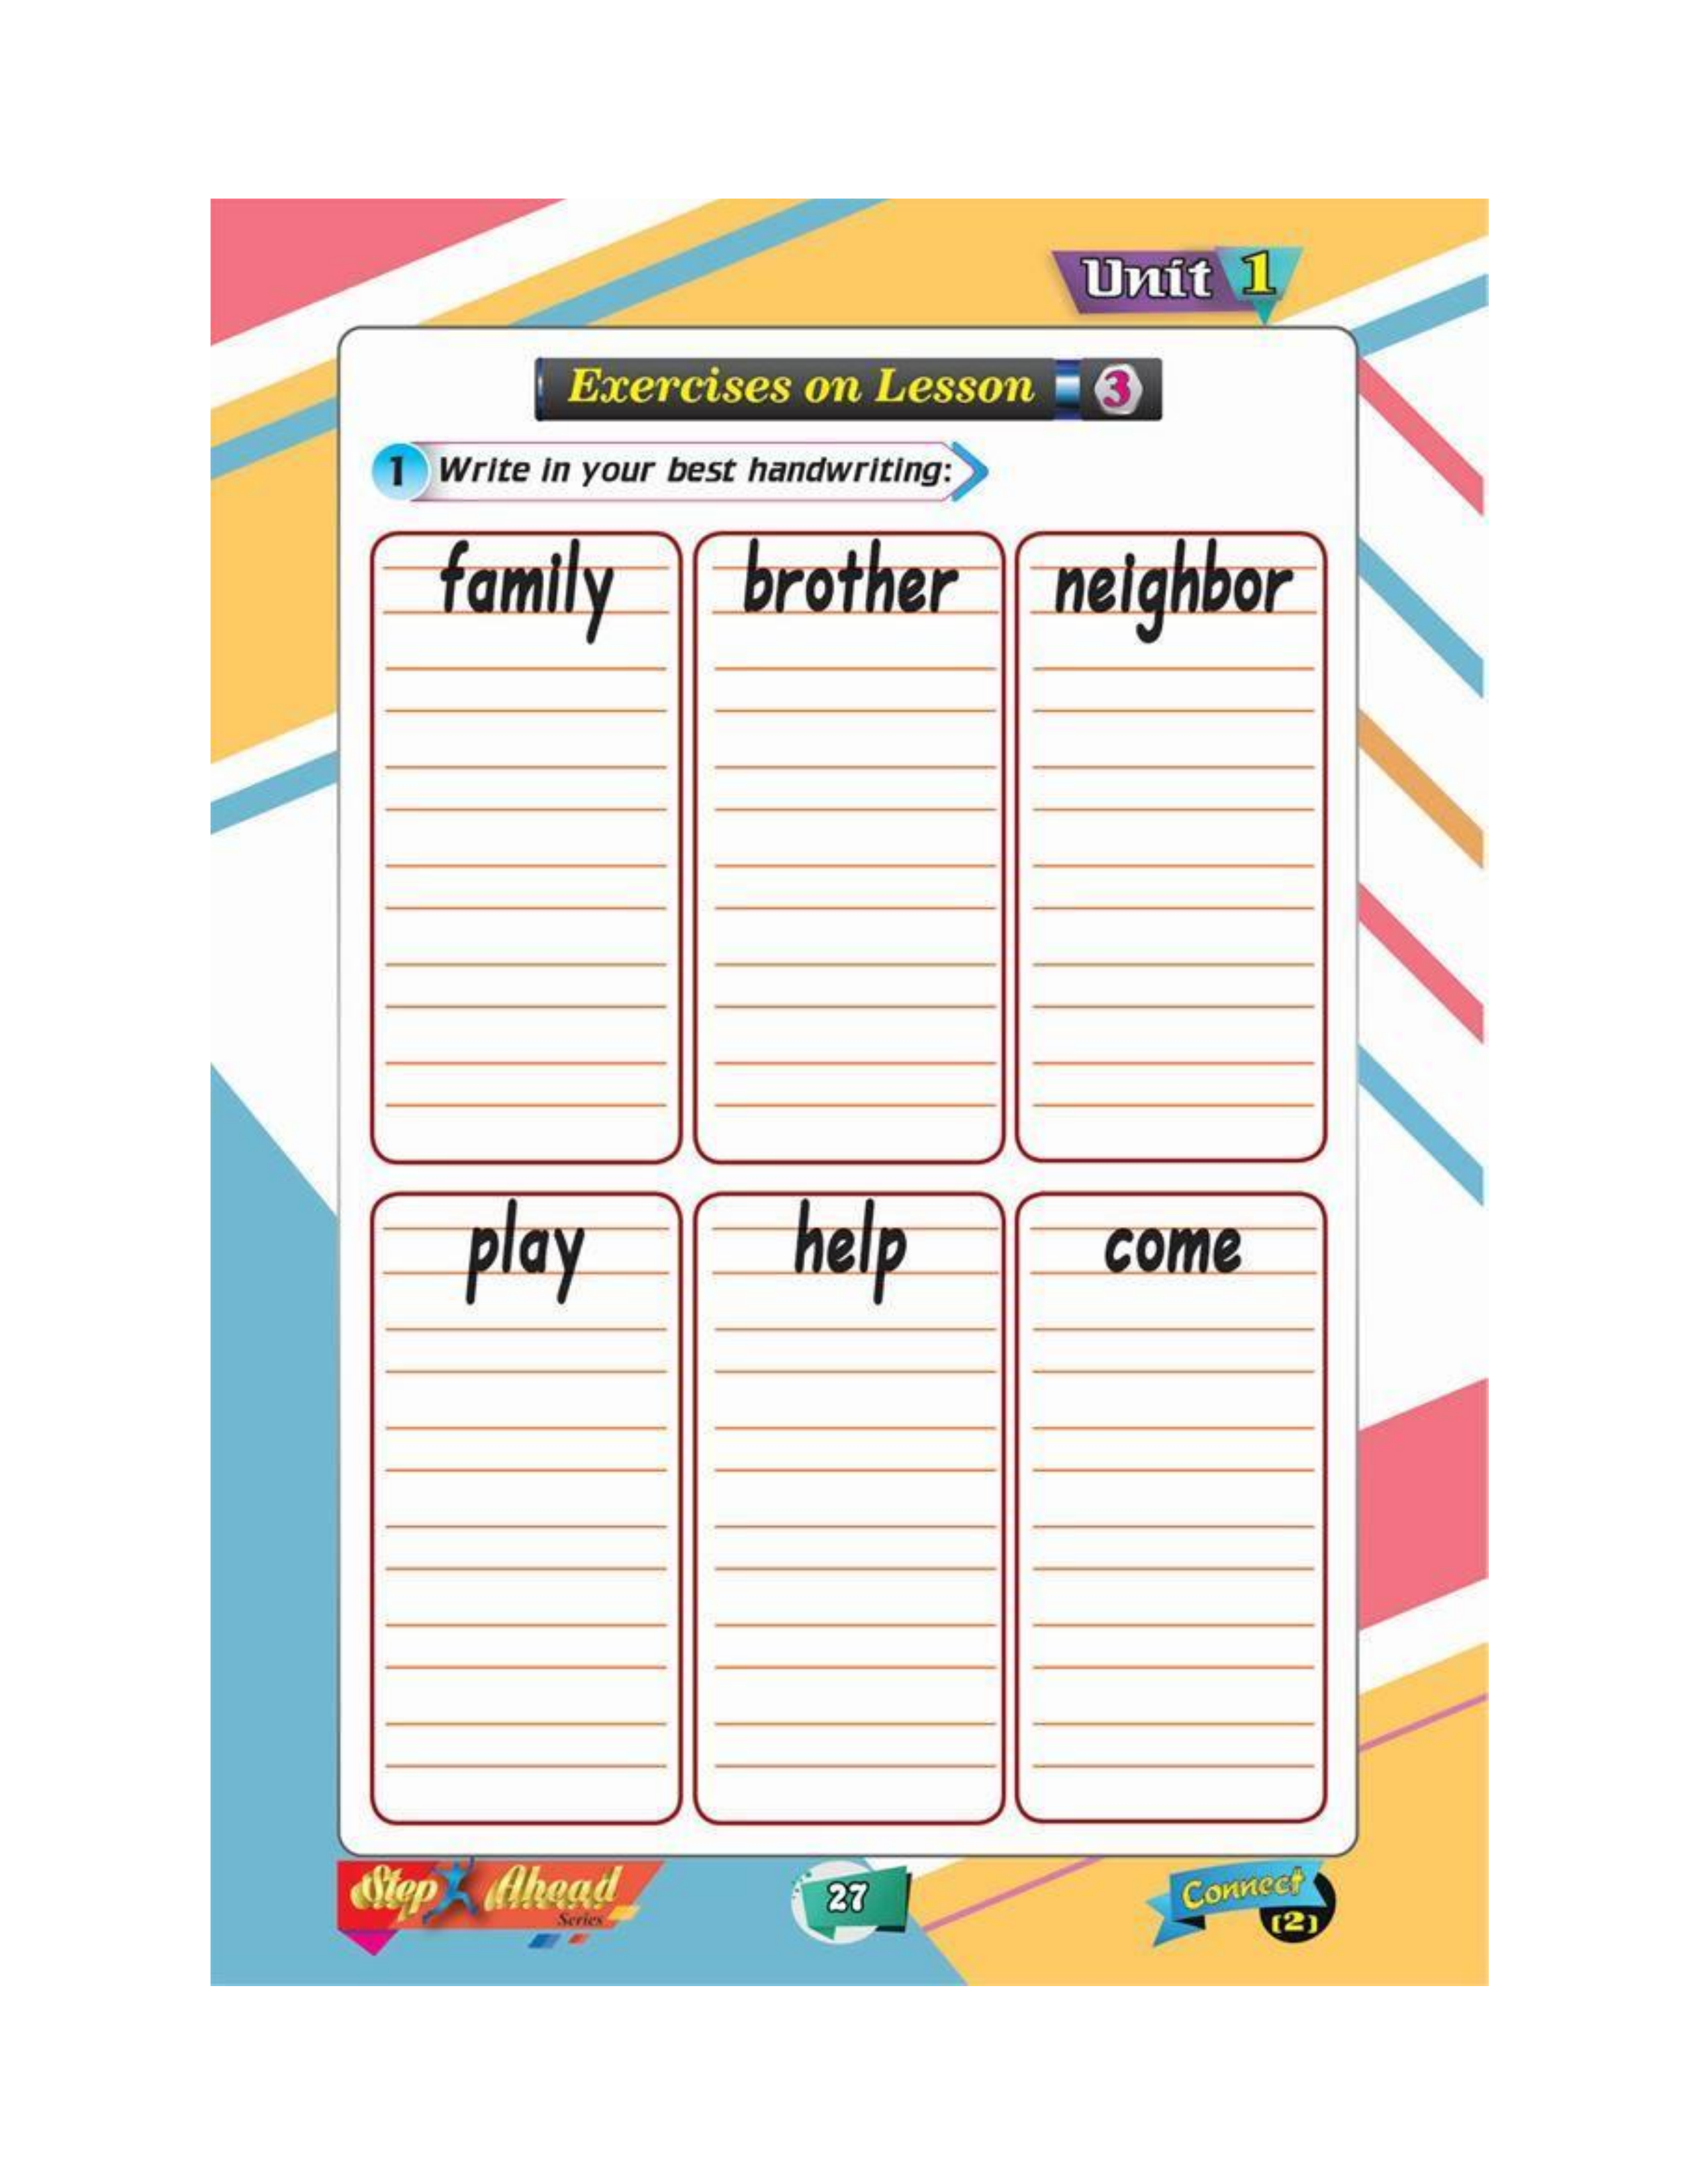 Unit 1
Exercises on Lesson 3
1 Write in your best handwriting:
family brother neighbor
play help come
Step Ahead
Series
27
Connect
(2)